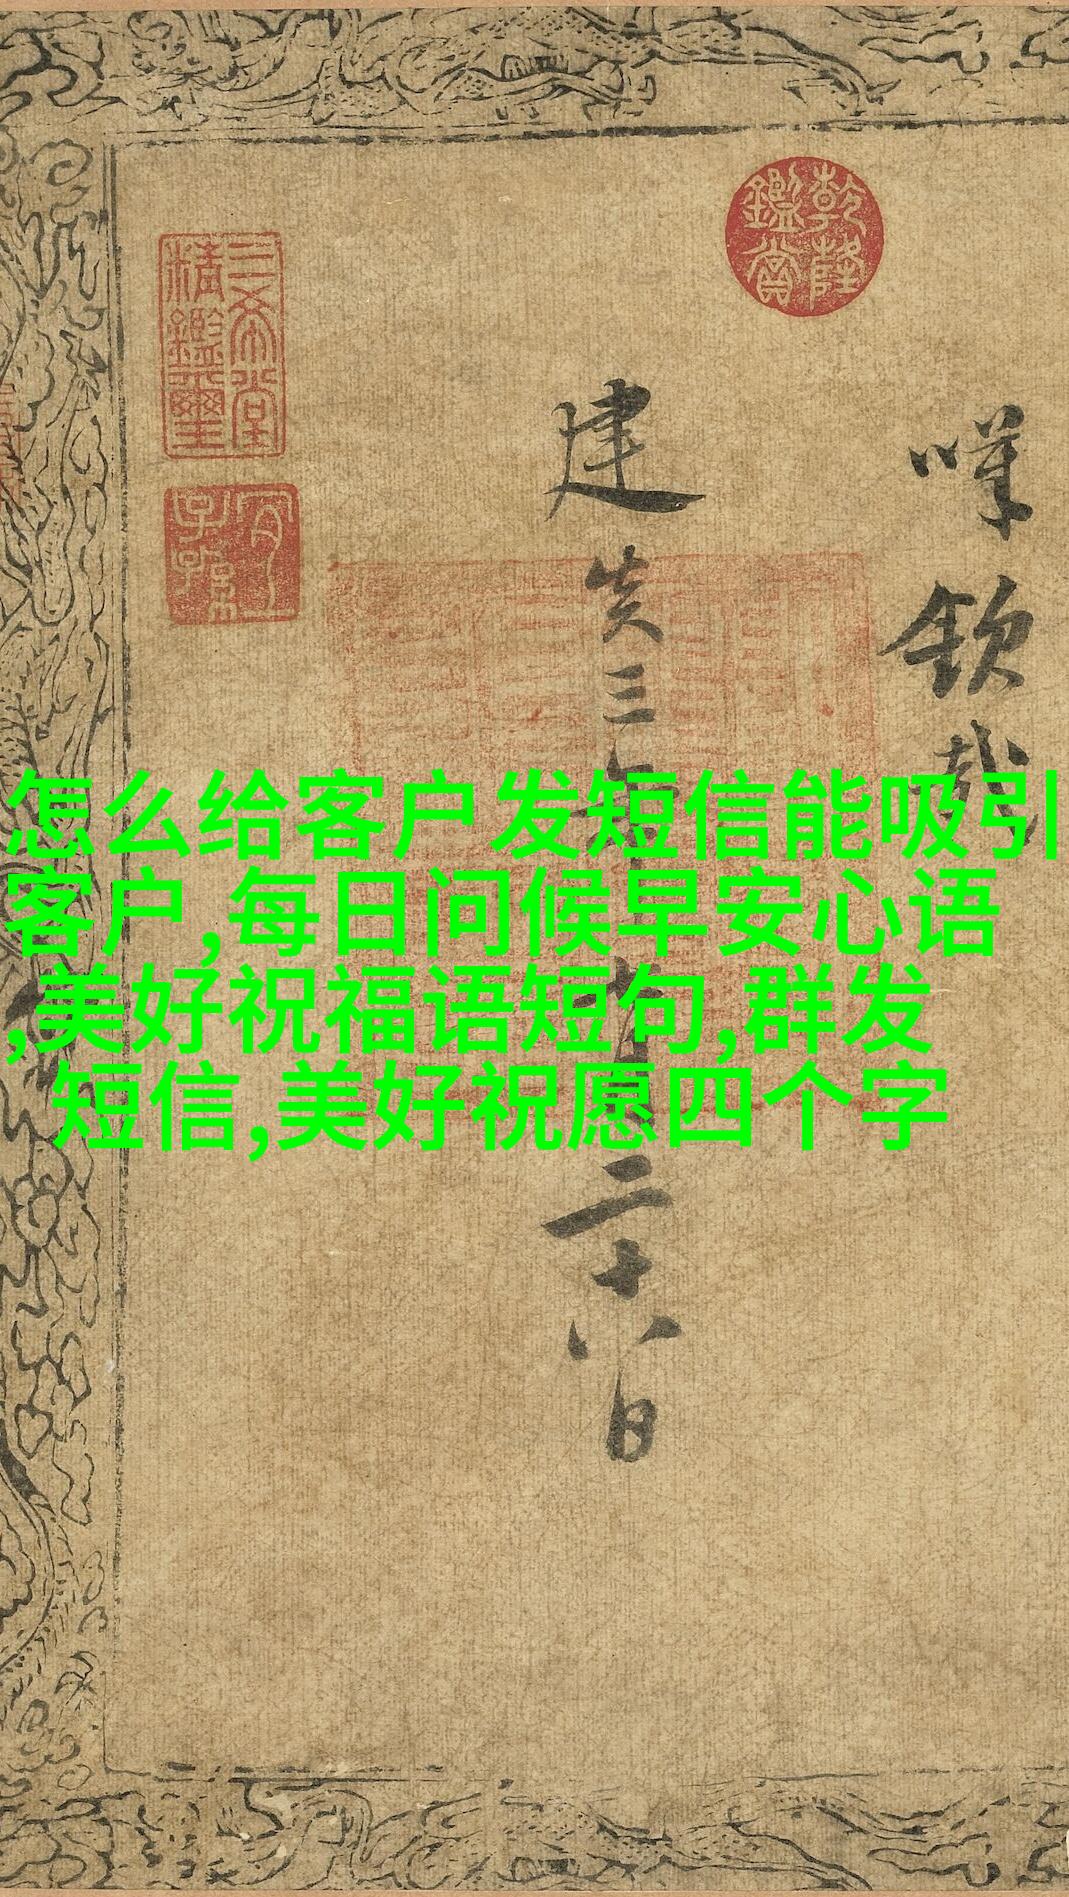 怎么给客户发短信能吸引
客户,每日问候早安心语
,美好祝福语短句,群发
短信,美好祝愿四个字
嘆欽哉
建炎三年
二十八日
乾隆鑑賞
三希堂精鑑璽
宜子孫